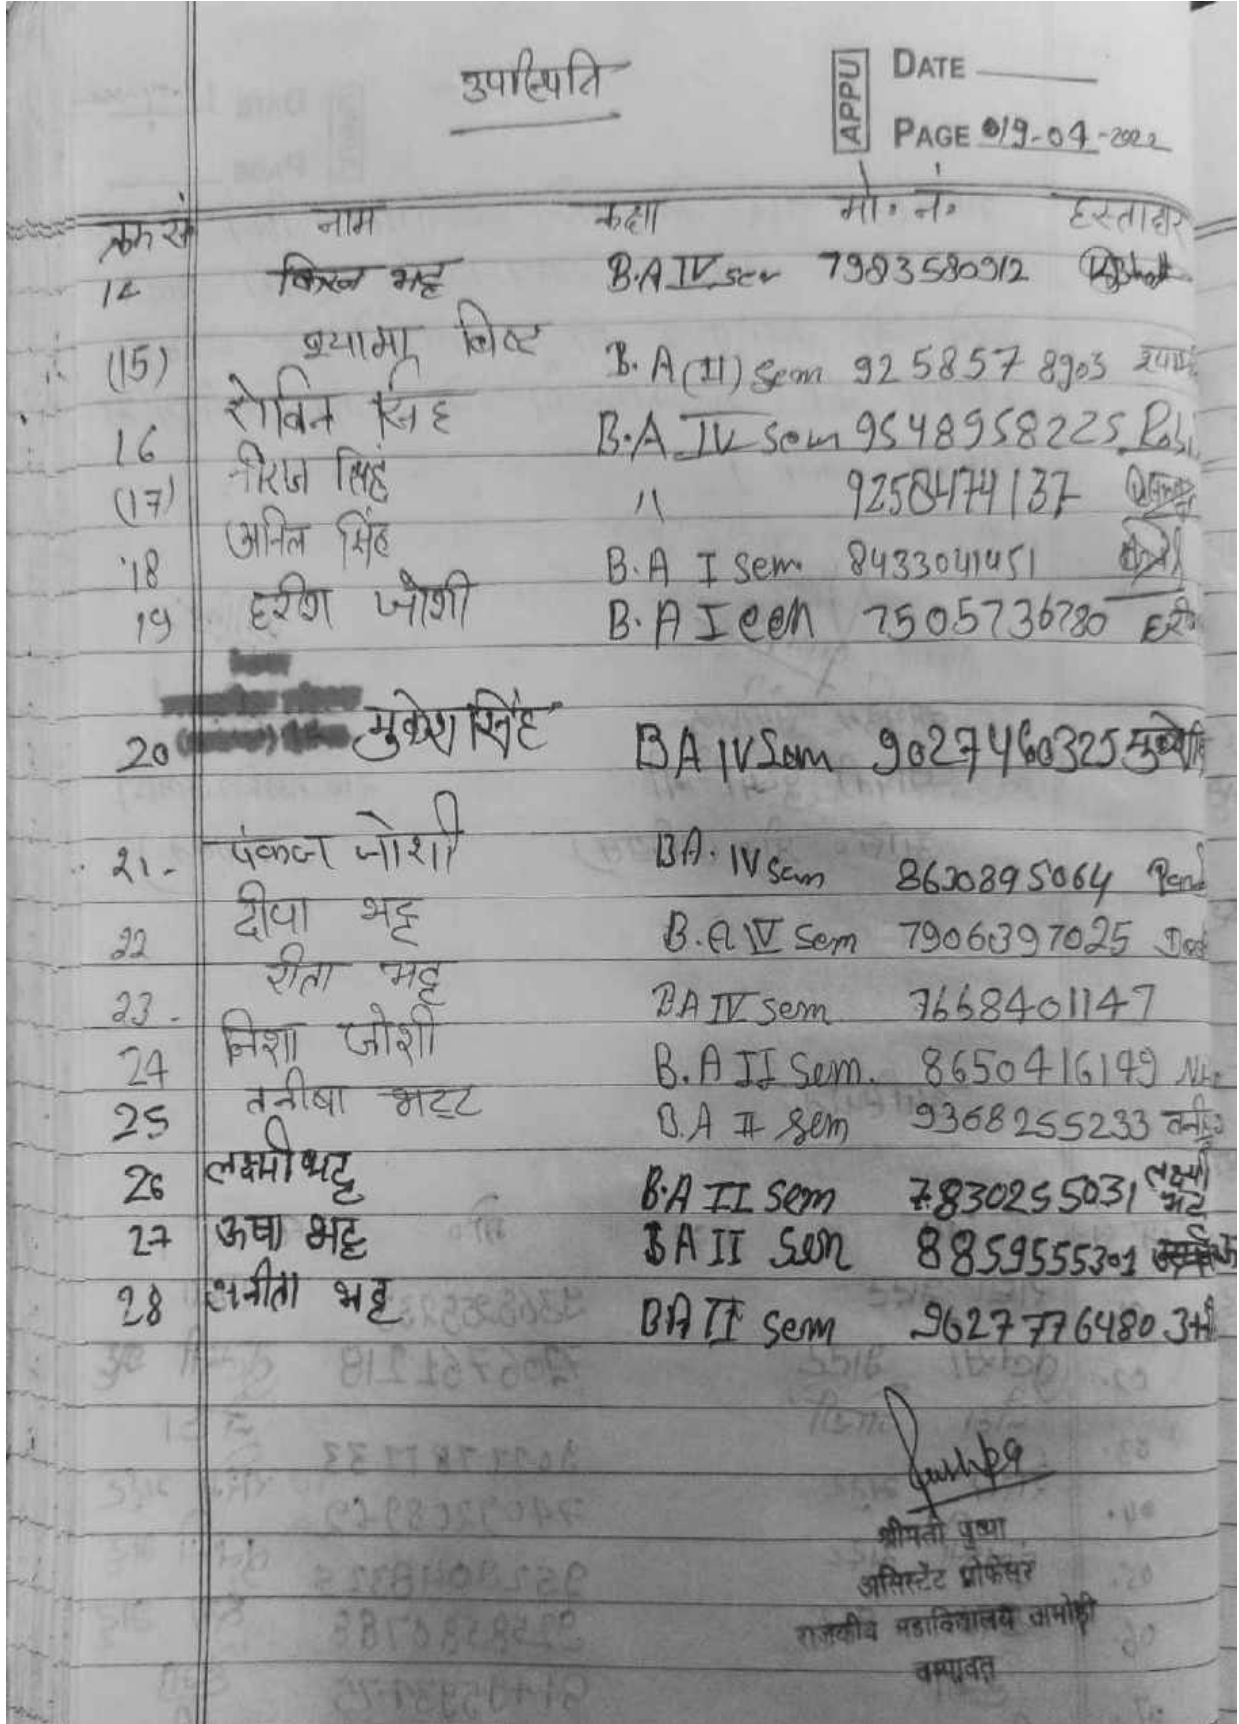 उपस्थिति
APPU
DATE
PAGE 019-04-2022
क्रम सं नाम कक्षा मो. नं. हस्ताक्षर
14 किरन भट्ट B.A IV sem 7983580912
(15) श्यामा बिष्ट B.A (II) Sem 9258578903 श्यामा
16 रोबिन सिंह B.A IV Sem 9548958225 Robi
(17) नीरज सिंह 11 9258474137
18 अनिल सिंह B.A I Sem 8433041451
19 हरीश जोशी B.A I eem 7505736780 हरी
20 मुकेश सिंह BA IV Sem 9027460325 मुकेश
21- पंकज जोशी BA. IV Sem 8630895064
22 दीपा भट्ट B.A IV Sem 7906397025
23- रीता भट्ट BA IV sem 7668401147
24 निशा जोशी B.A II Sem. 8650416149
25 तनीषा भट्ट B.A II Sem 9368255233 तनीषा
26 लक्ष्मी भट्ट B.A II Sem 7830255031 लक्ष्मी भट्ट
27 ऊषा भट्ट BA II Sem 8859555301
28 अनीता भट्ट BA II Sem 9627776480 अनी
Pushpa
श्रीमती पुष्पा
असिस्टेंट प्रोफेसर
राजकीय महाविद्यालय अमोड़ी
चम्पावत